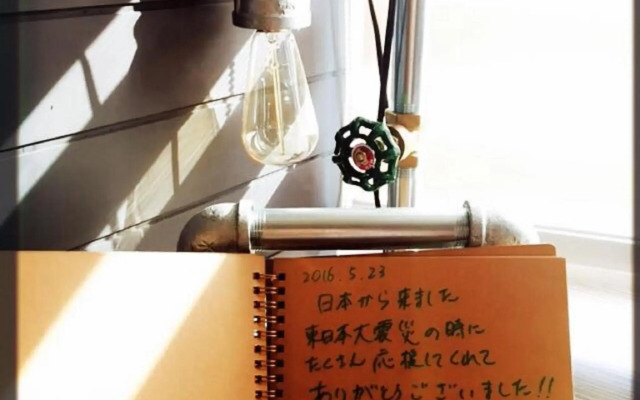 2016.5.23
日本から来ました
東日本大震災の時に
たくさん応援してくれて
ありがとうございました!!